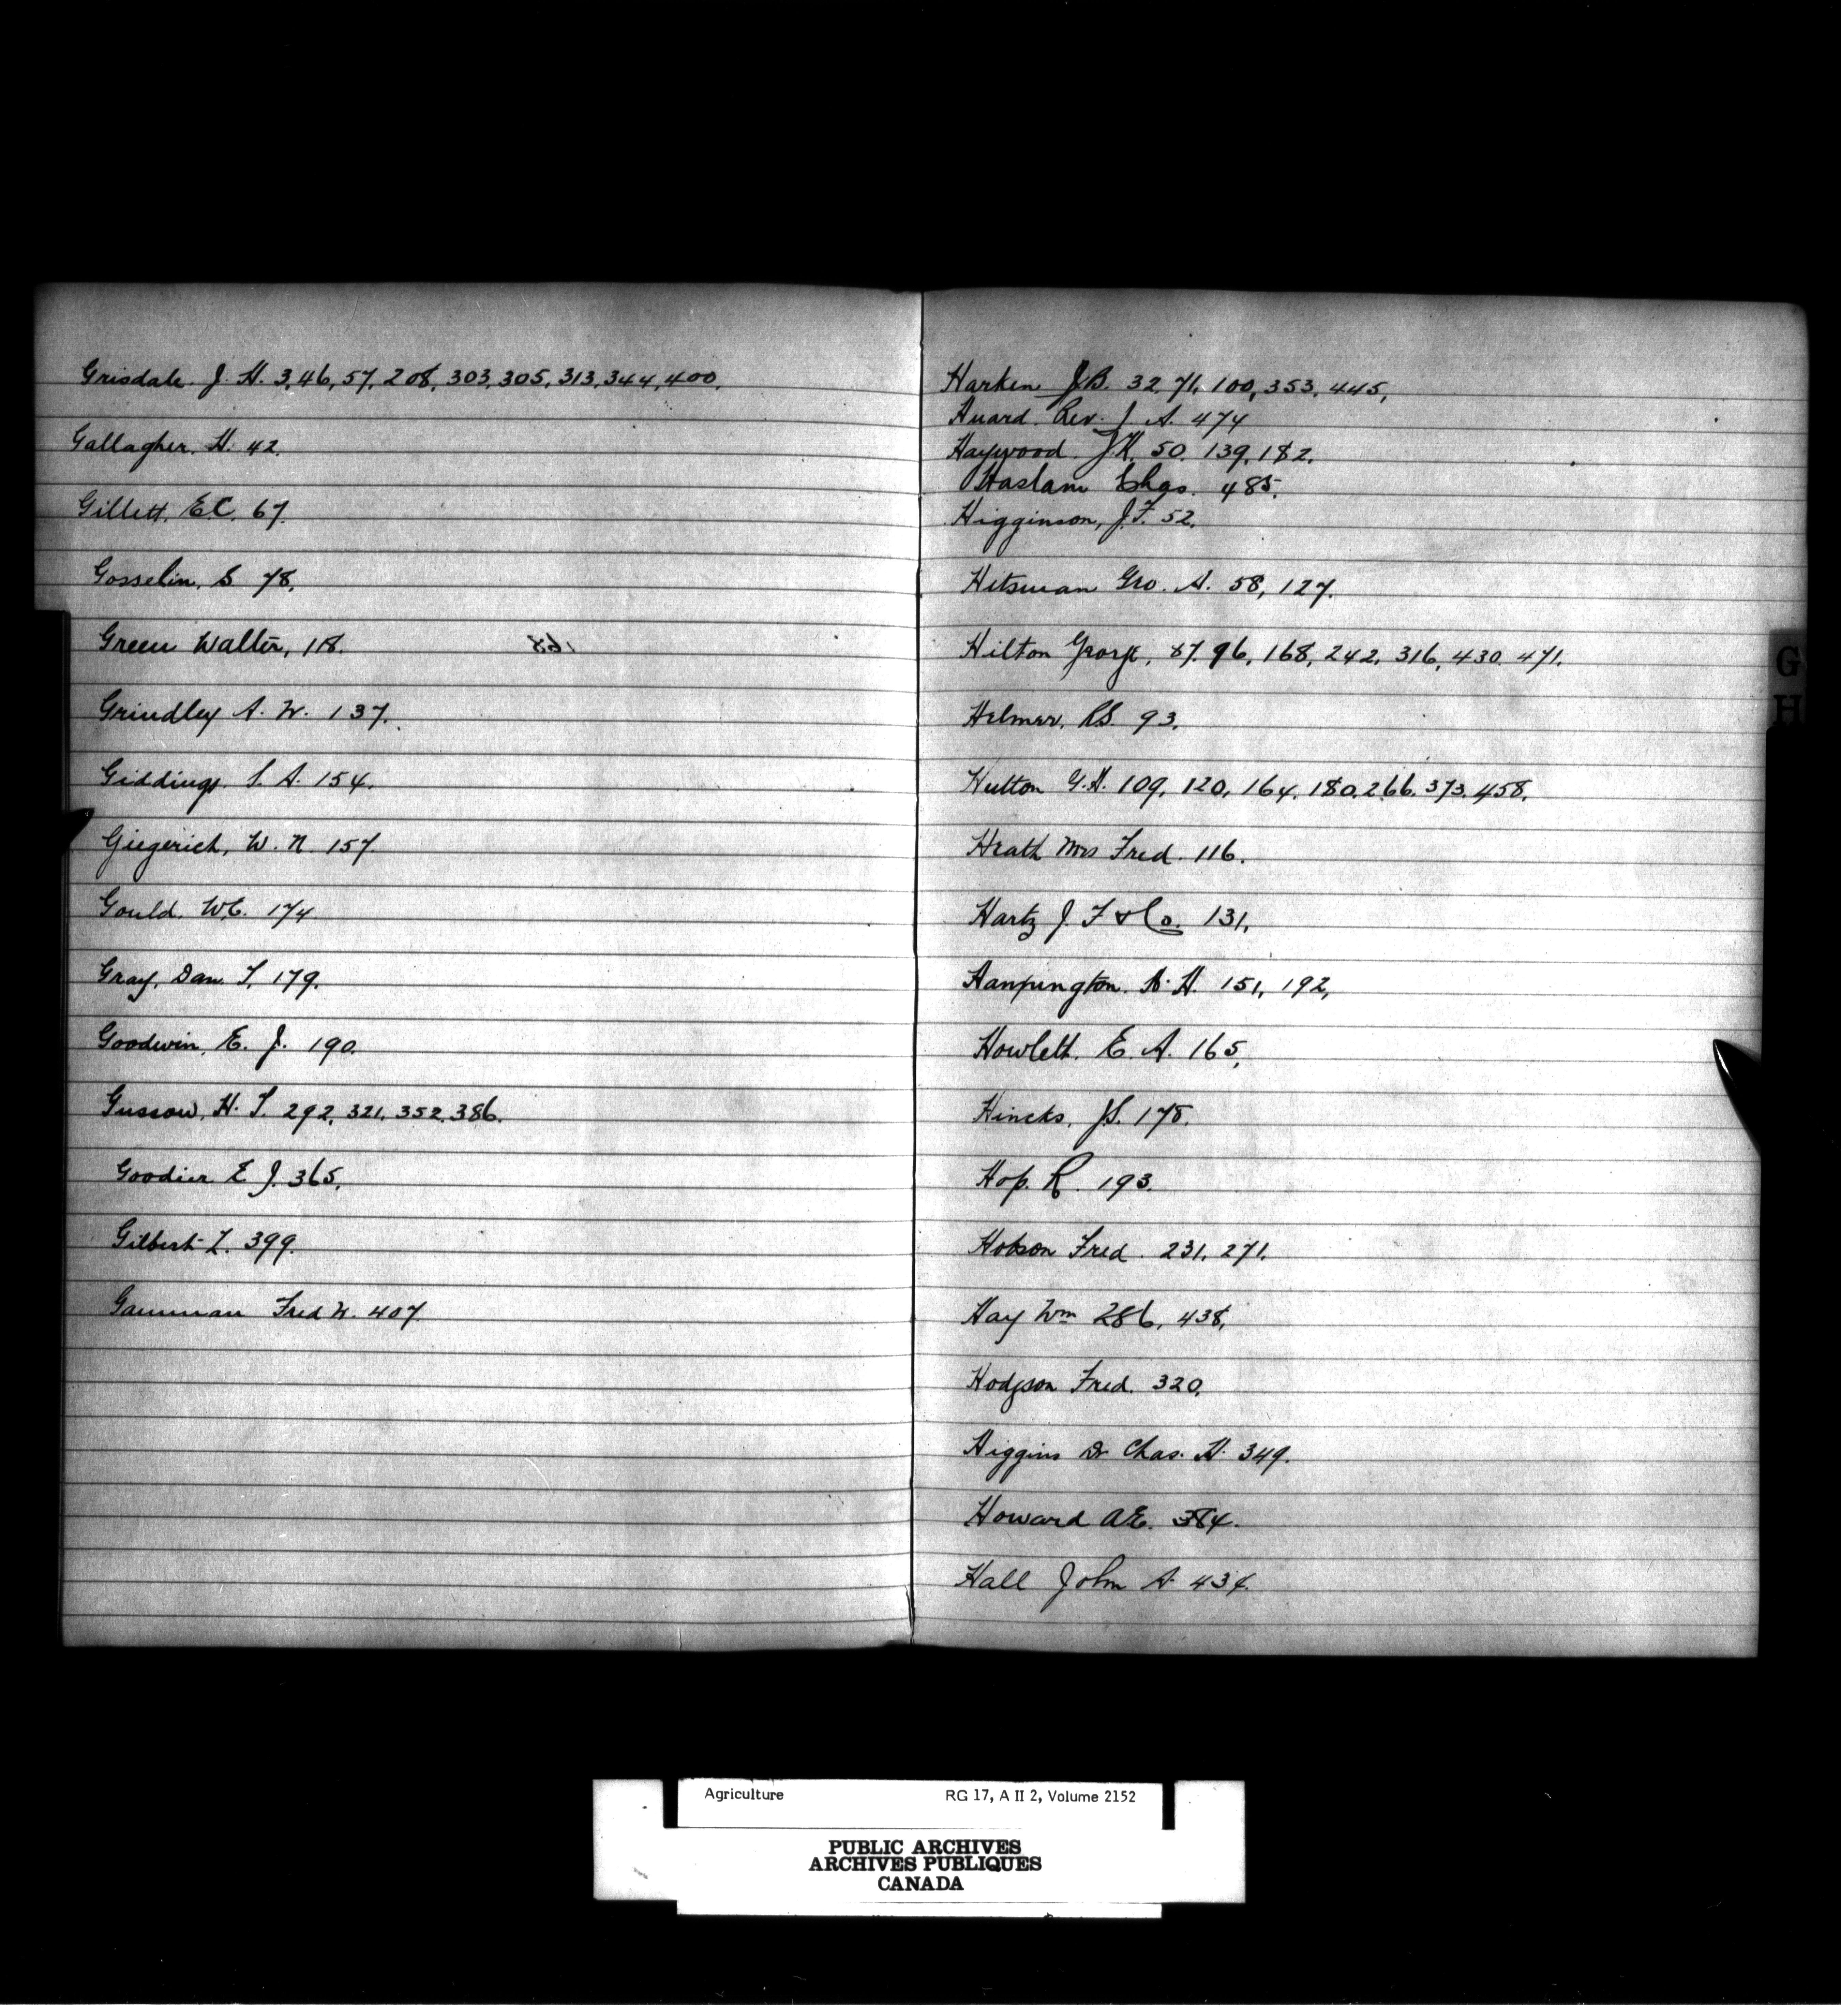 Grisdale. J. H. 3, 46, 57, 208, 303, 305, 313, 344, 400,
Gallagher. H. 42.
Gillett. E.C. 67.
Gosselin, S 78.
Green Walter, 118.
Grindley A. W. 137.
Giddings. S. A. 154.
Giegerich, W. N. 157
Gould. W.C. 174
Gray, Dan. T. 179.
Goodwin, E. J. 190.
Gussow, H. T. 292, 321, 352, 386.
Goodier E J. 365.
Gilbert L. 399.
Gamman Fred W. 407.
Harken J.B. 32, 71, 100, 353, 445,
Huard. Rev. J. A. 474
Haywood. J.K. 50. 139, 182.
Haslam Chas. 485.
Higginson, J.F. 52.
Hitsman Geo. A. 58, 127.
Hilton George, 87. 96, 168, 242, 316, 430, 471.
Helmer, R.S. 93.
Hutton G.H. 109, 120, 164, 180, 266, 373, 458,
Heath Mrs Fred. 116.
Hartz J. F & Co. 131,
H. 151, 192,
Howlett. E. A. 165,
Hincks, J.S. 178.
Hop. R. 193.
Hobson Fred. 231, 271.
Hay Wm 286, 438,
Hodgson Fred. 320.
Higgins Dr Chas. H. 349.
Howard A.E. 384.
Hall John A. 434.
G
H
Agriculture RG 17, A II 2, Volume 2152
PUBLIC ARCHIVES
ARCHIVES PUBLIQUES
CANADA